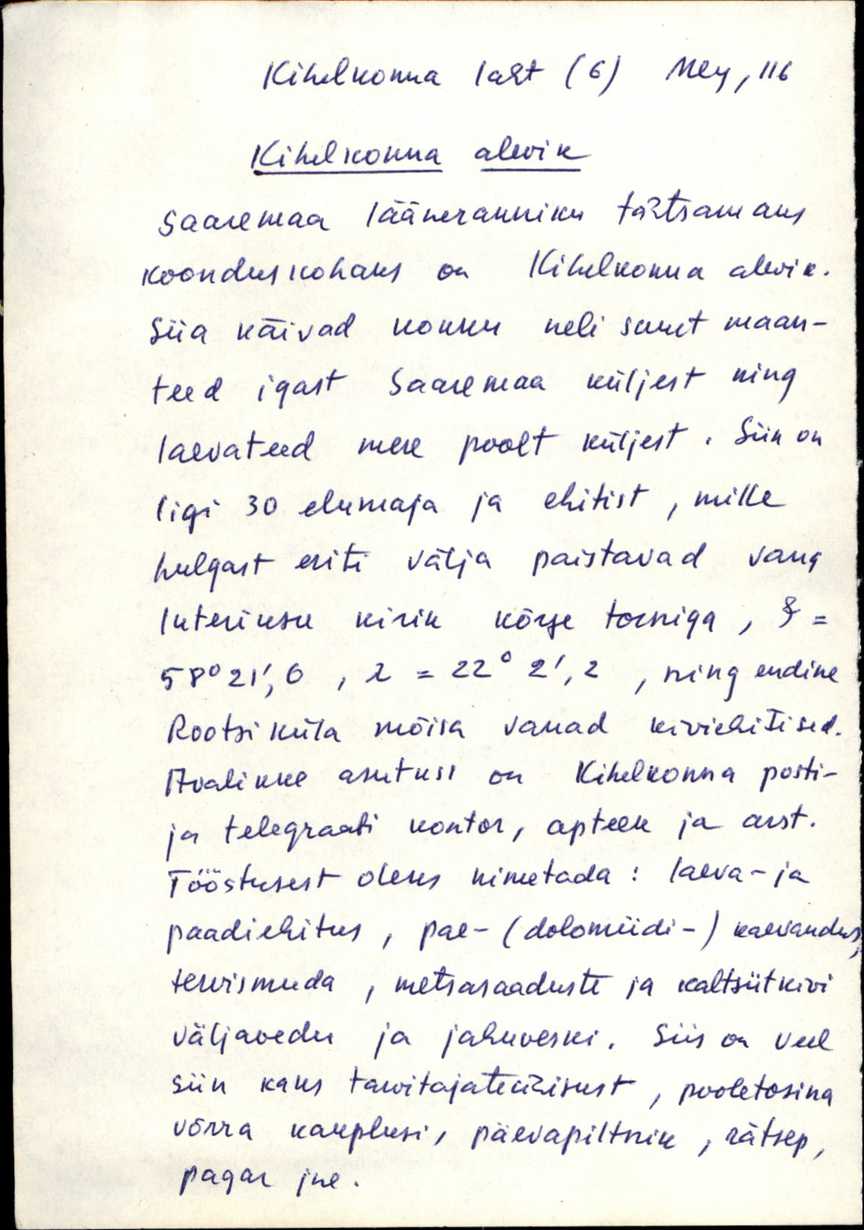 Kihelkonna laht (6) Mey, 116
Kihelkonna alevik
Saaremaa lääneranniku tähtsamaks
koonduskohaks on Kihelkonna alevik.
Siia käivad kokku neli suurt maan-
teed igast Saaremaa küljest ning
laevateed mere poolt küljest. Siin on
ligi 30 elumaja ja ehitist, mille
hulgast eriti välja paistavad vana
luteriusu kirik kõrge torniga, =
58° 21',6, λ = 22° 2',2, ning endine
Rootsiküla mõisa vanad kiviehitised.
Avalikke asutusi on Kihelkonna posti-
ja telegraafi kontor, apteek ja arst.
Tööstusest oleks nimetada: laeva- ja
paadiehitus, pae- (dolomiidi-) kaevandus,
tervismuda, metsasaaduste ja kaltsiitkivi
väljavedu ja jahuveski. Siis on veel
siin kaks tarvitajateühisust, pooletosina
võrra kauplusi, päevapiltnik, rätsep,
pagar jne.